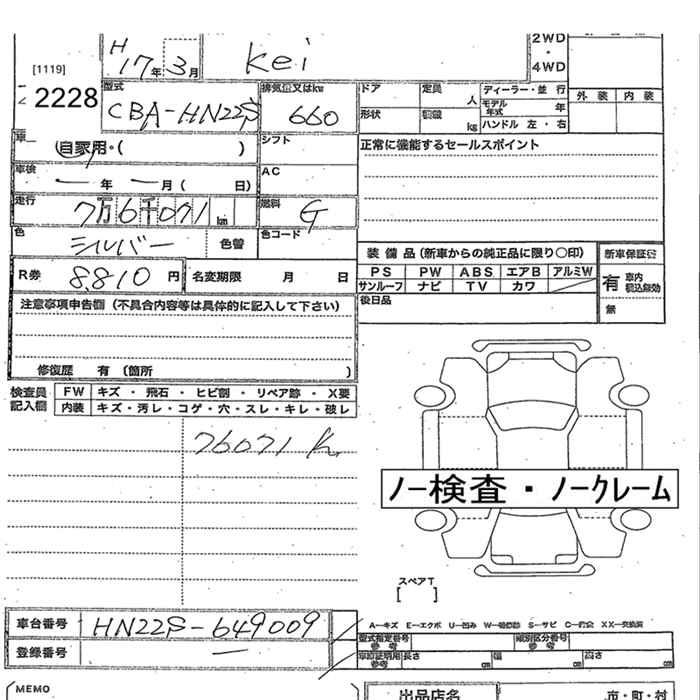 H
17年 3月
Kei
2WD
・
4WD
[1119]
2228
型式
CBA-HN22S
排気量又はkw
660
ドア
定員
人
形状
kg
ディーラー・並 行
モデル
年式
年
ハンドル 左・右
外 装
内 装
自家用・( )
シフト
正常に機能するセールスポイント
車検
ー 年 ー 月 ( 日)
AC
走行
7万6千071
km
燃料
G
色
シルバー
色替
色コード
R券
8,810 円
名変期限 月 日
装 備 品 (新車からの純正品に限り○印)
新車保証書
PS PW ABS エアB アルミW
サンルーフ ナビ TV カワ
後日品
有 車内
積込無効
無
注意事項申告欄 (不具合内容等は具体的に記入して下さい)
修復歴 有 〔箇所 〕
検査員
記入欄
FW キズ・飛石・ヒビ割・リペア跡・X要
内装 キズ・汚レ・コゲ・穴・スレ・キレ・破レ
76071 K
ノー検査・ノークレーム
スペアT
[ ]
車台番号
HN22S-649009
登録番号
ー
A-キズ E-エクボ U-凹み W-補修跡 S-サビ C-腐食 XX-交換済
型式指定番号
参 考
類別区分番号
参 考
車庫証明用
参考
長さ cm
幅 cm
高さ cm
MEMO
出品店名
市・町・村